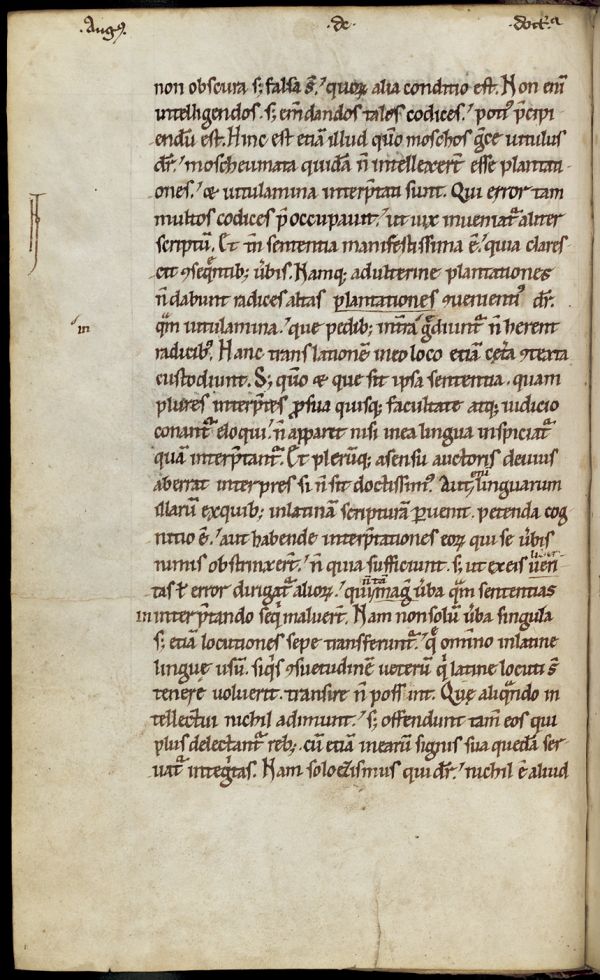 .Augꝰ. .de .doct͛ª
non obscura s; falsa s̄.' quoꝝ alia conditio est. Non eni̅
intelligendos. s; em̅dandos tales codices.' potiꝰ p̄cipi
endu̅ est. Hinc est etia̅ illud qūo moschos g̅ce uitulus
dr̄.' moscheumata quida̅ n̄ intellexer̄t esse plantati
ones.' & uitulamina interp̄tati sunt. Qui error tam
multos codices p̄occupauit.' ut uix inueniat᷑ aliter
scriptu̅. Et tn̄ sententia manifestissima ē.' quia clares
cit ꝯseq̅ntib; u̅bis. Namq; adulterine plantationes
n̄ dabunt radices altas plantationes ꝯuenientiꝰ dr̄.
in
qͣm uitulamina.' que pedib; in t̅ra g̅diunt᷑ n̄ herent
radicibꝰ. Hanc translatione̅ in eo loco etia̅ cęt̅a ꝯtexta
custodiunt. S; qūo & que sit ipsa sententia. quam
plures interp̄tes ꝓ sua quisq; facultate atq; iudicio
conant᷑ eloqui.' n̄ apparet nisi in ea lingua inspiciat᷑
qua̅ interp̄tant᷑. Et pleru̅q; a sensu auctoris deuius
aberrat interpres si n̄ sit doctissimꝰ. Aut linguarum
illaru̅ ex quib; in latina̅ scriptura̅ ꝑuenit. petenda cog
nitio ē.' aut habende interp̄tationes eoꝝ qui se u̅bis
nimis obstrinxer̄t.' n̄ quia sufficiunt. s; ut ex eis ueri
tas ł error dirigat᷑ alioꝝ.' qui n̄ ta̅ mag̅ u̅ba qͣm sententias
in interp̄tando seq̅ maluer̄t. Nam non solu̅ u̅ba singula
s; etia̅ locutiones sepe transferunt᷑.' q̄ om̅ino in latine
lingue̜ usu̅. siq̅s ꝯsuetudine̅ ueteru̅ q̅ latine locuti s̄
tenere uoluerit. transire n̄ possint. Quę aliqͣndo in
tellectui nichil adimunt.' s; offendunt tam̅ eos qui
plus delectant᷑ reb;. cu̅ etia̅ in earu̅ signis sua queda̅ ser
uat᷑ integ̅tas. Nam solocismus qui dr̄.' nichil ē aliud